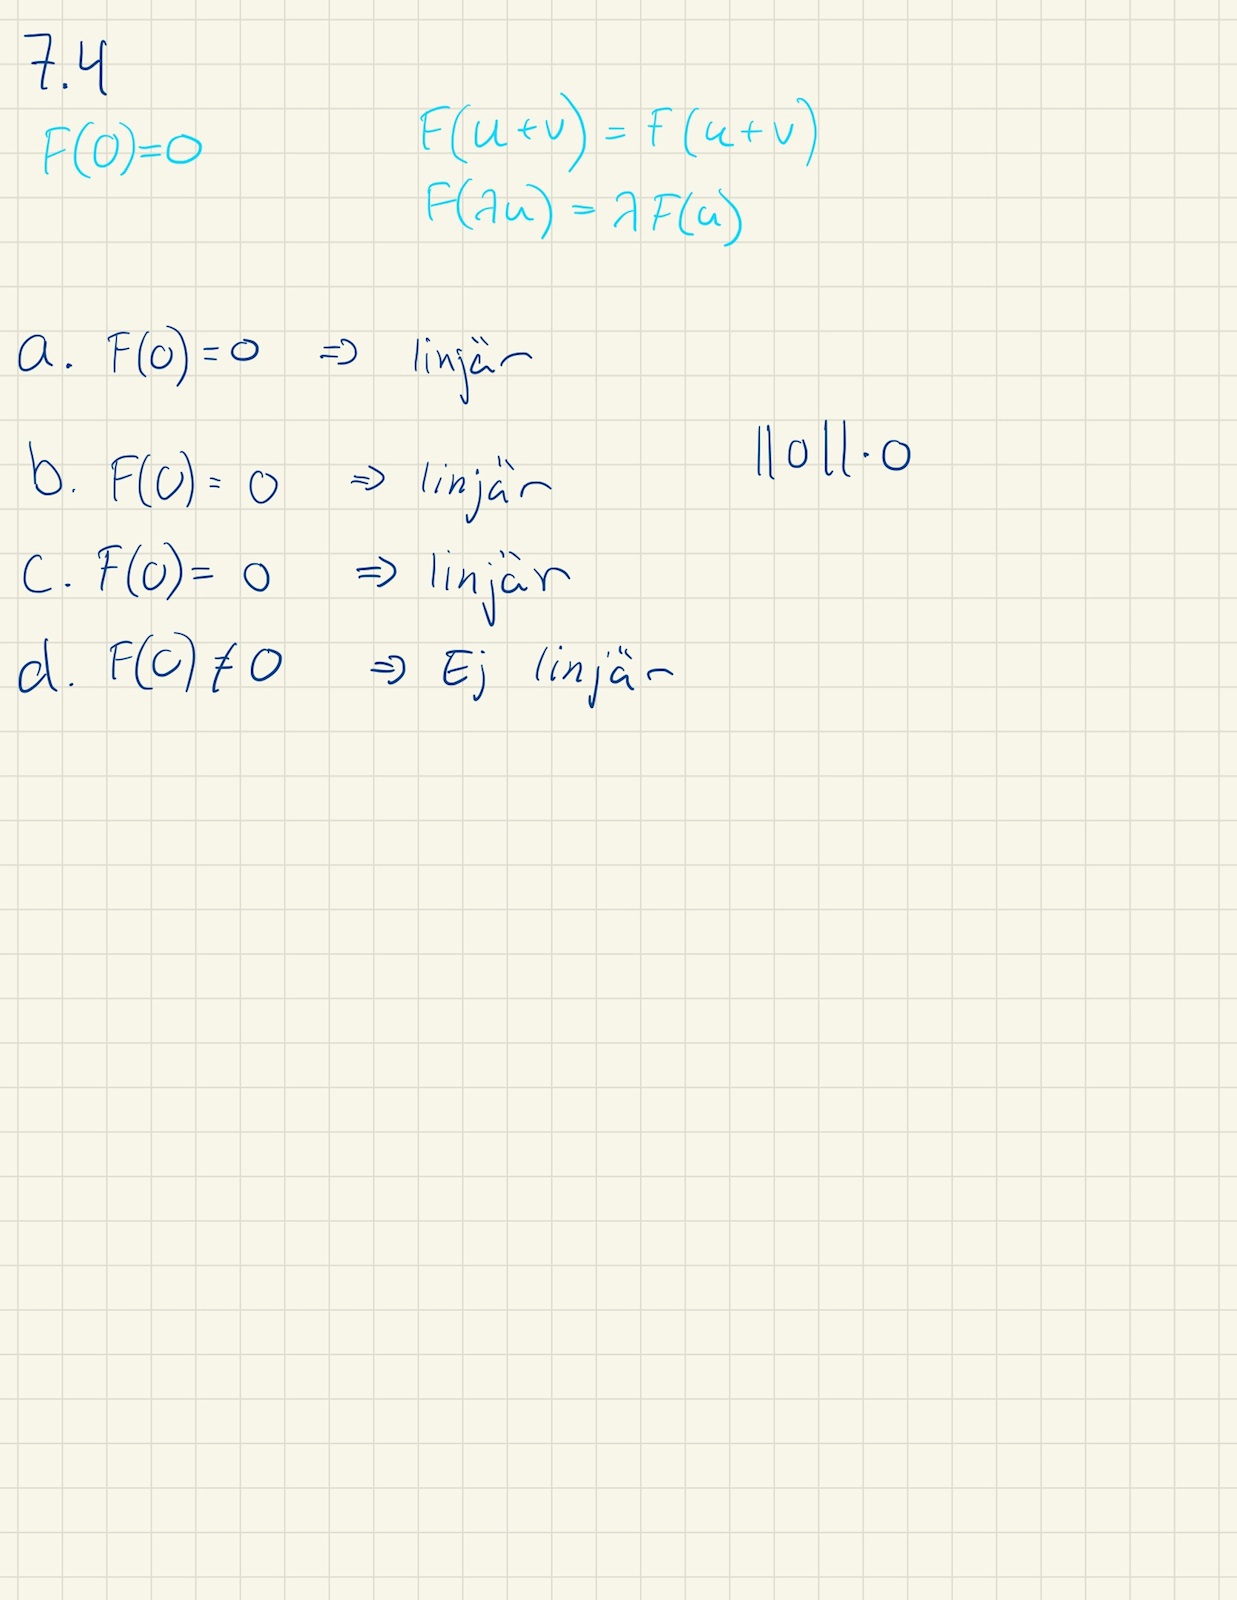 7.4
F(0)=0
F(u+v) = F(u+v)
F(λu) = λF(u)
a. F(0)=0 => linjär
b. F(0)= 0 => linjär
||0||·0
c. F(0)= 0 => linjär
d. F(0)≠0 => Ej linjär